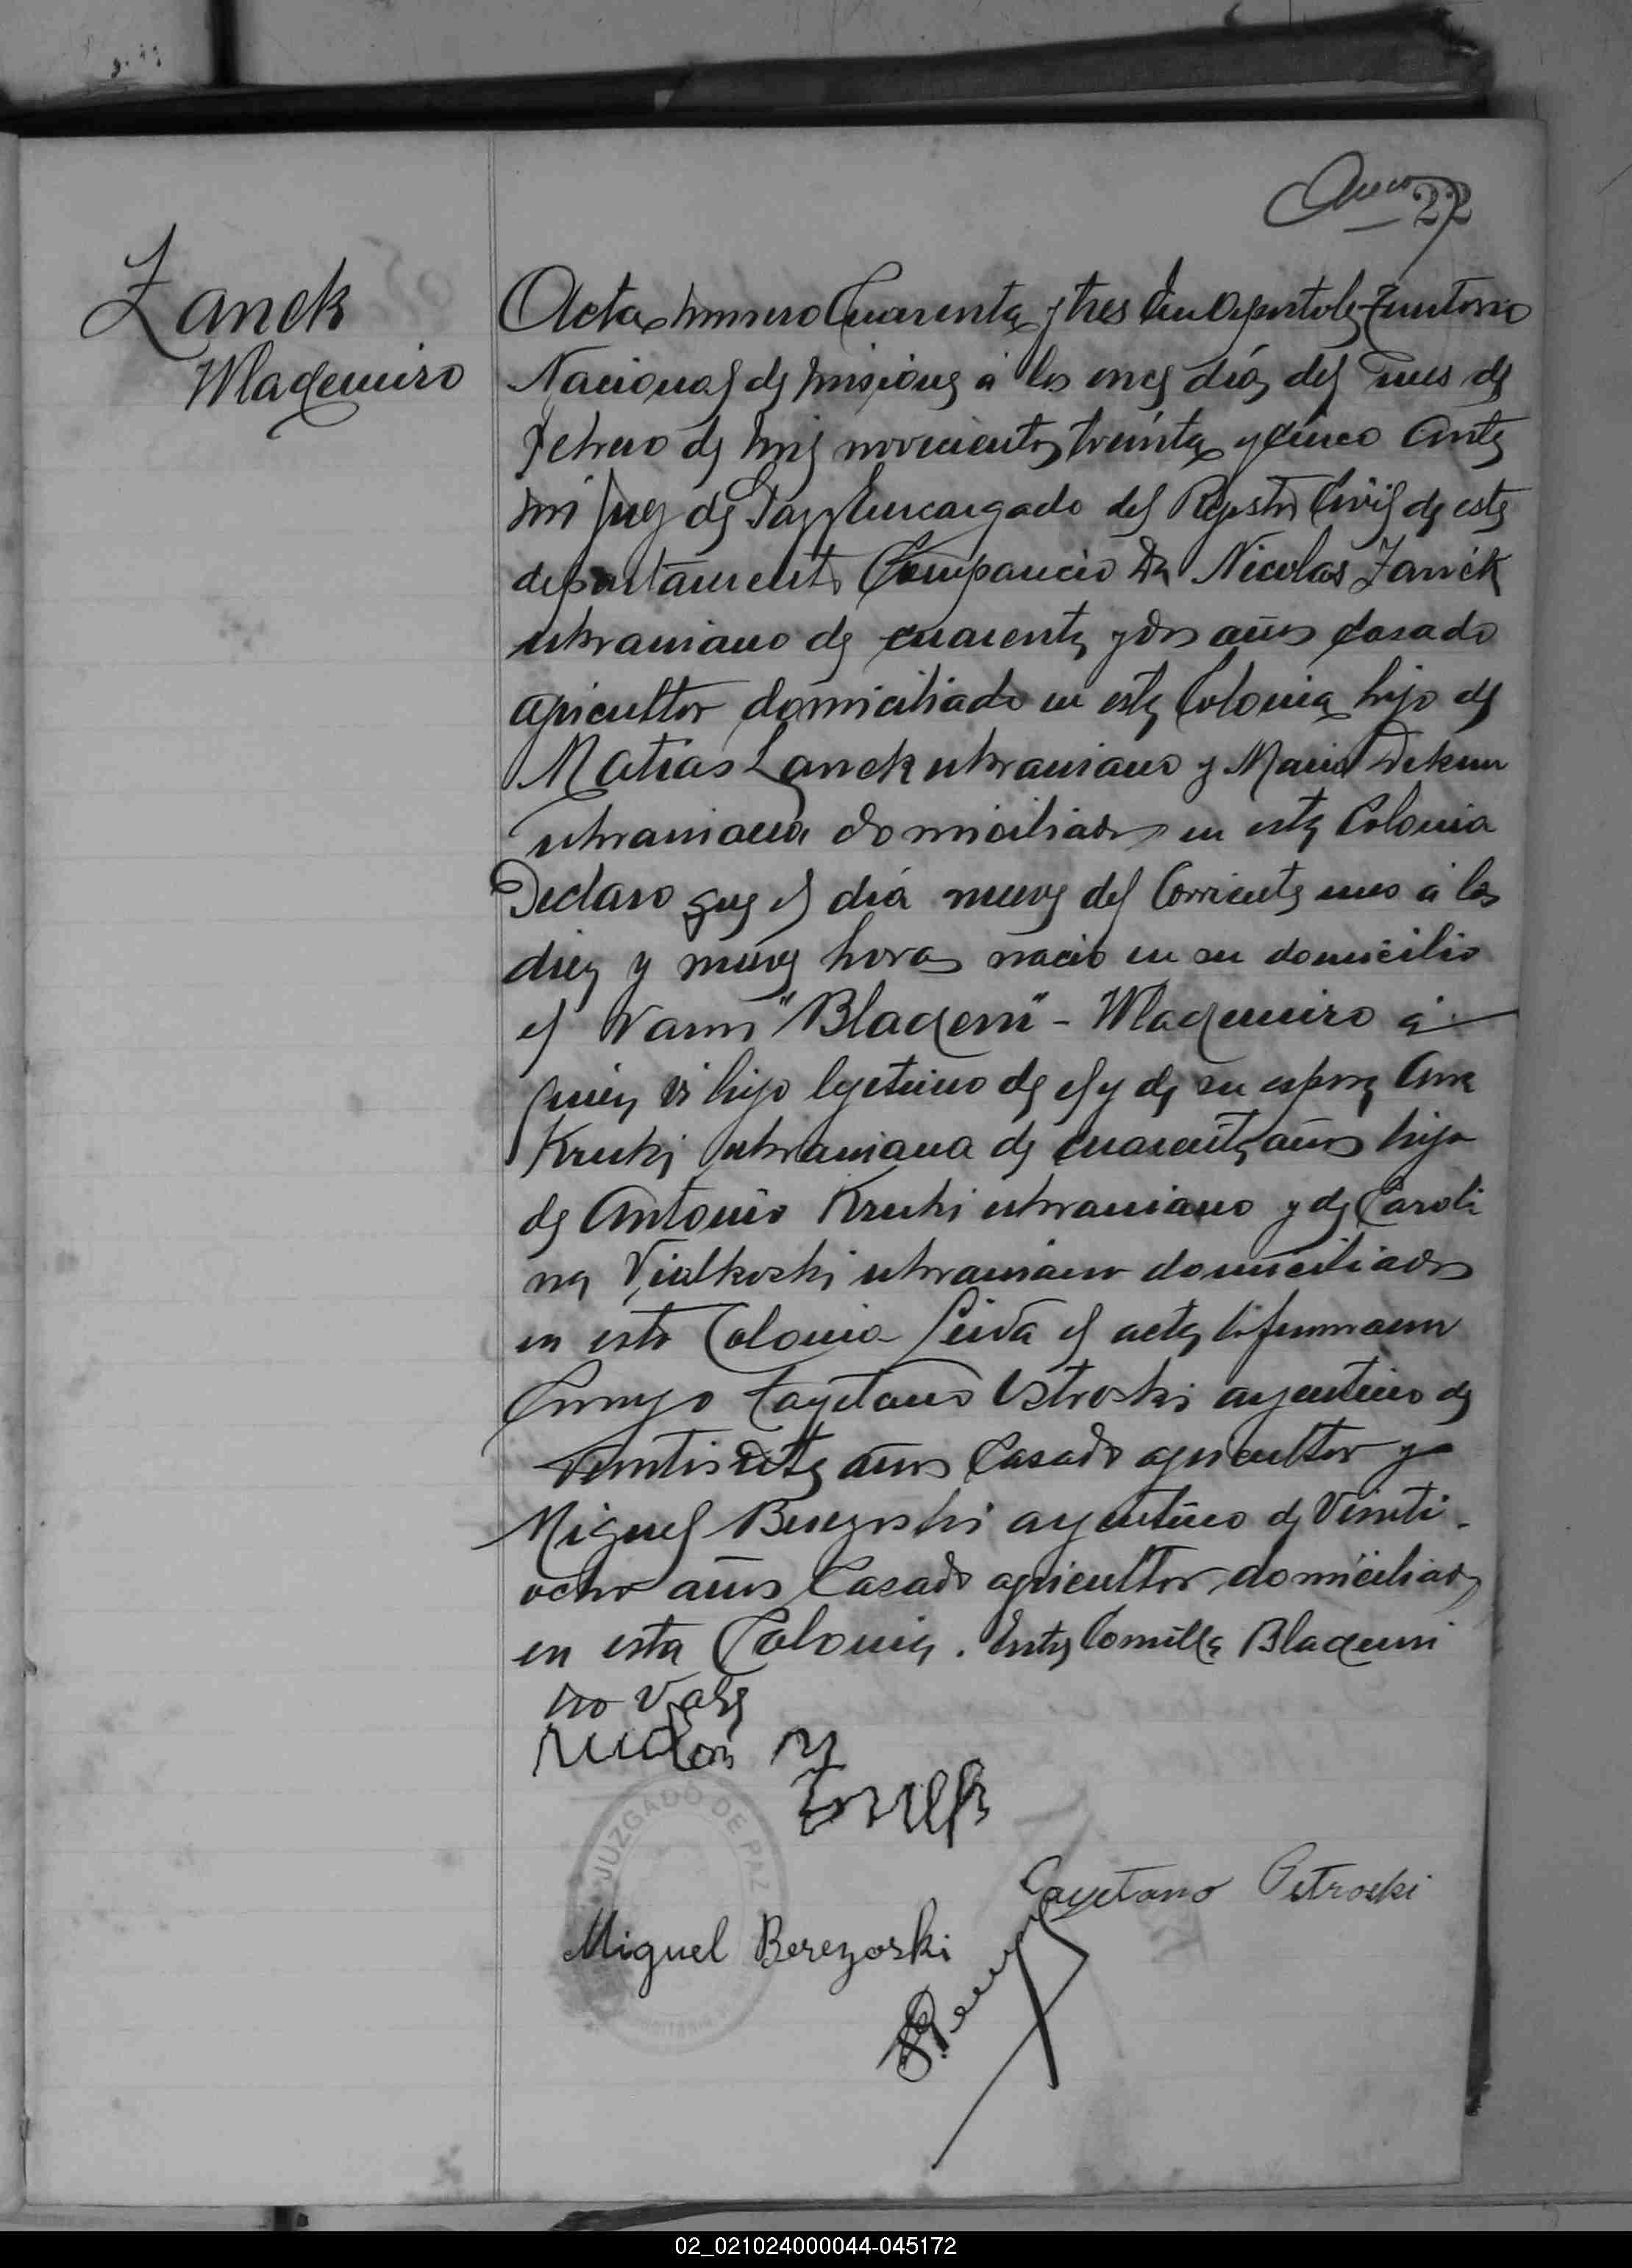 22
Zanek
Wlademiro
Acta numero Cuarenta y tres En Apostoles Territorio
Nacional de Misiones a los once dias del mes de
Febrero de mil novecientos treinta y cinco Ante
mi Juez de Paz y Encargado del Registro Civil de este
departamento Comparecio Dn Nicolas Zanek
ukraniano de cuarenta y dos años Casado
agricultor domiciliado en esta Colonia hijo de
Matias Zanek ukraniano y Maria
ukraniana domiciliados en esta Colonia
Declaro que el dia nueve del Corriente mes a las
diez y nueve horas nacio en su domicilio
el Varon "Blademi" - Wlademiro a
quien es hijo legitimo de el y de su esposa Ana
Kruki ukraniana de cuarenta años hija
de Antonio Kruki ukraniano y de Caroli
na Vialkoski ukraniano domiciliados
en esta Colonia Leida el acta la firmaron
Conmigo Cayetano Ostroski argentino de
Veintisiete años Casado agricultor y
Miguel Berezoski argentino de Veinti-
ocho años Casado agricultor domiciliados
en esta Colonia. Entre Comilla Blademi
no Vale
JUZGADO DE PAZ
Cayetano Ostroski
Miguel Berezoski
02_021024000044-045172